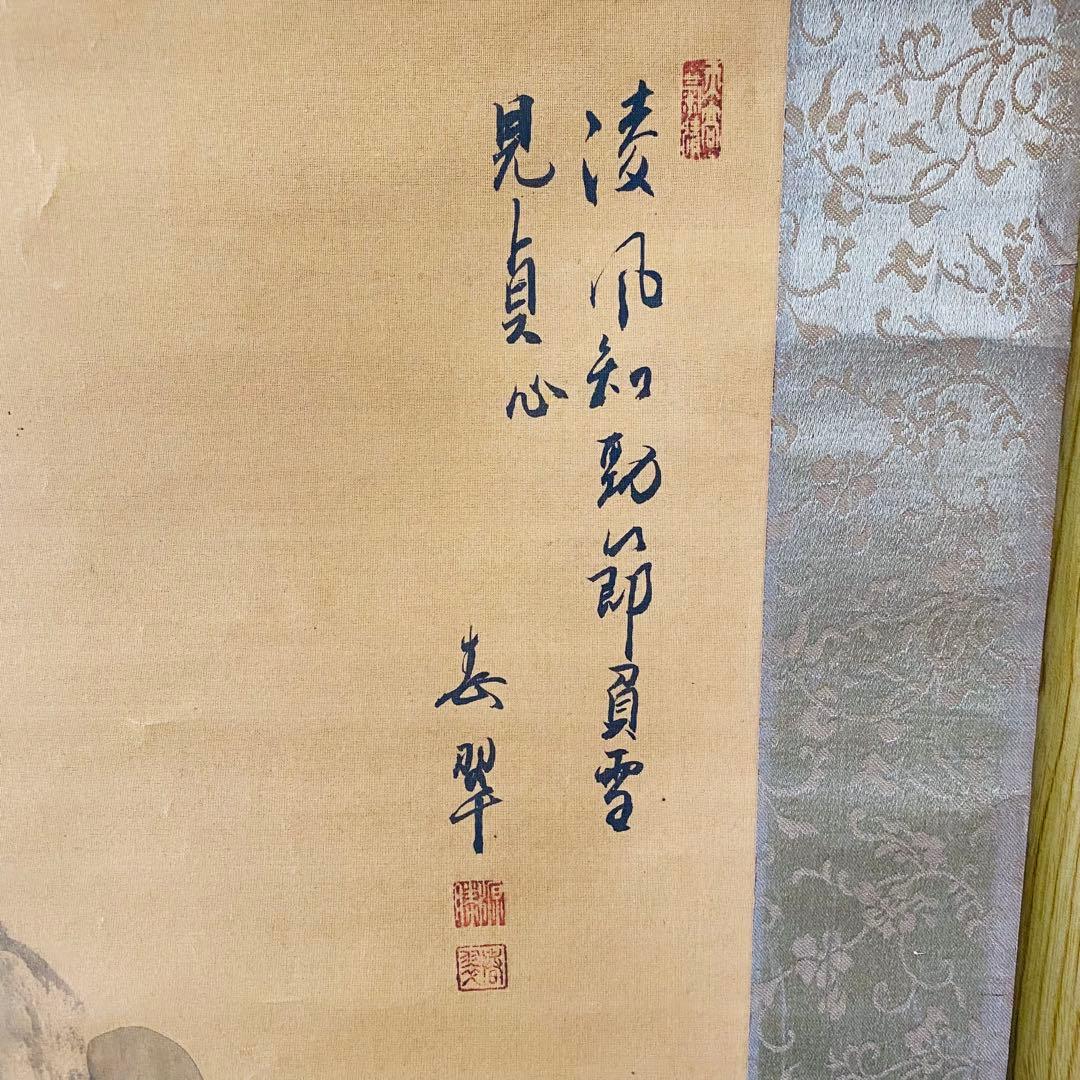 凌风知勁節負雪
見貞心
春翠